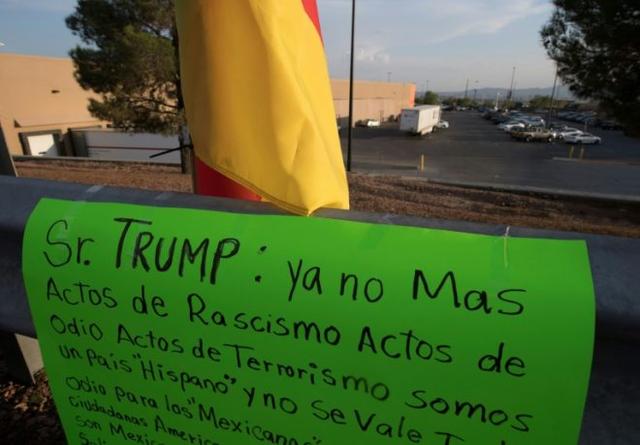 Sr. TRUMP: ya no Mas
Actos de Rascismo Actos de
Odio Actos de Terrorismo somos
un País "Hispano" y no Se Vale
Odio para los "Mexicanos"
Ciudadanas
Son